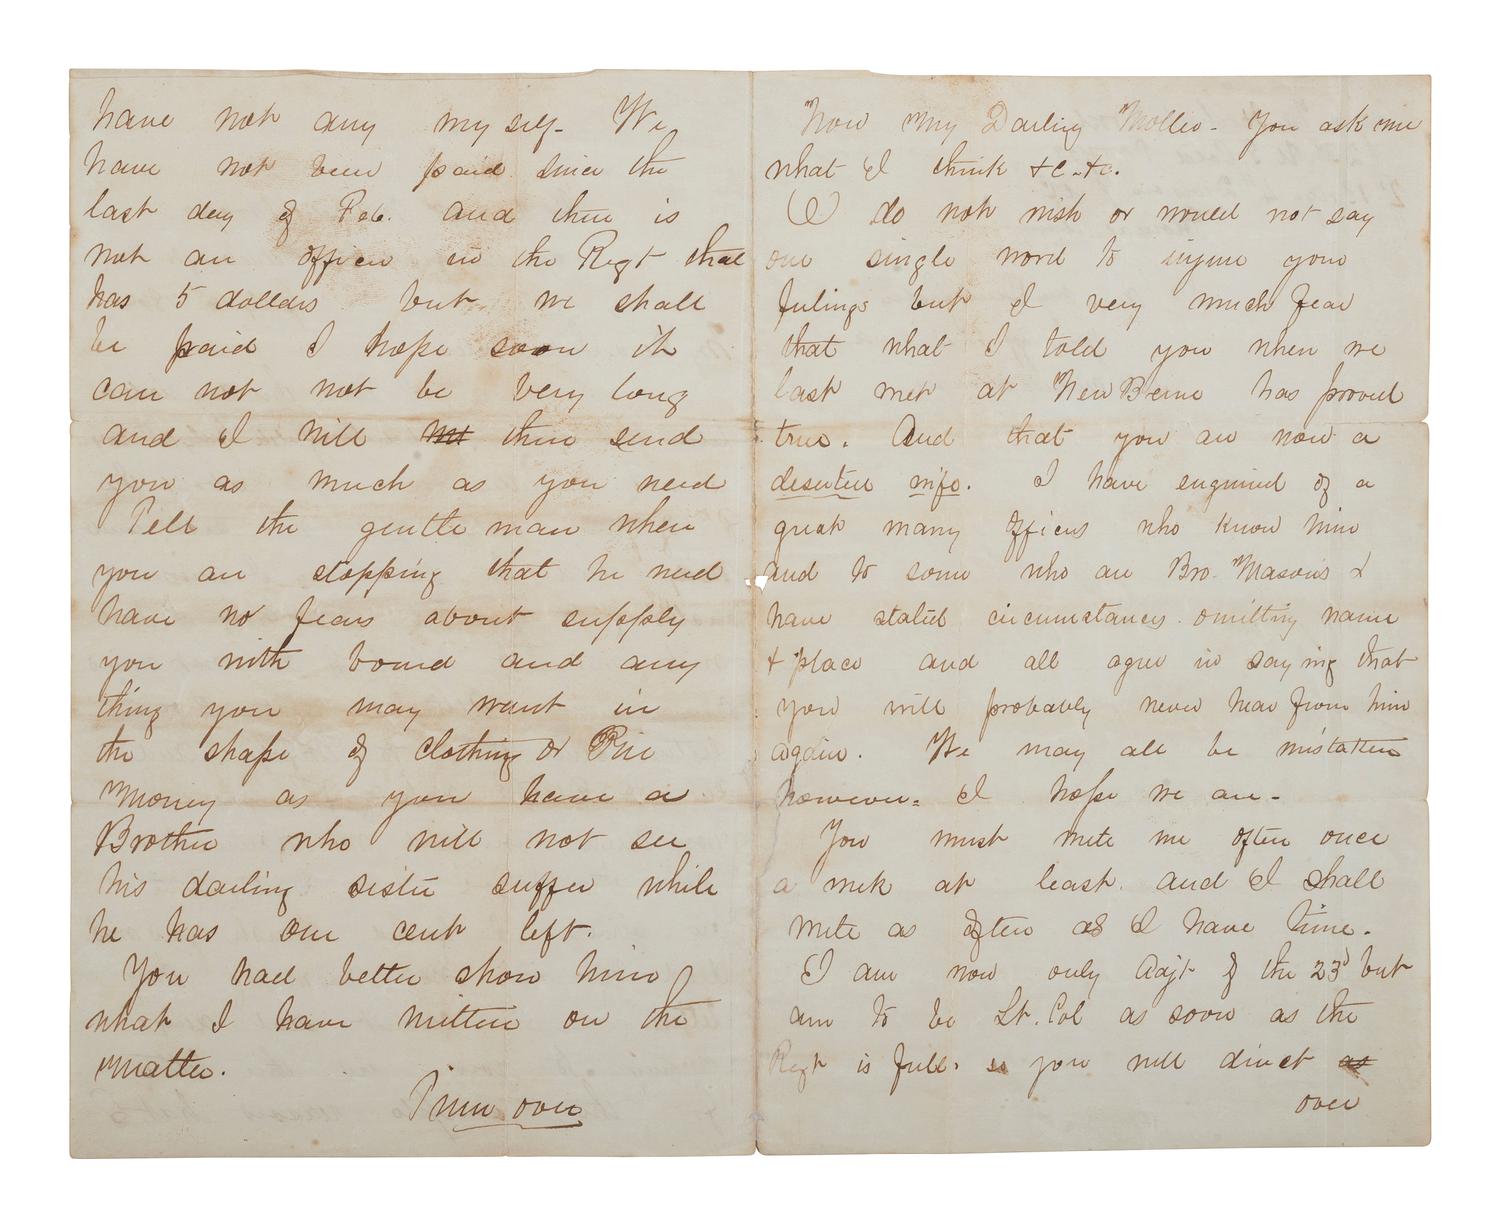 have not any my self- We
have not been paid since the
last day of Feb. and there is
not an officer in the Regt that
has 5 dollars but we shall
be paid I hope soon it
can not not be very long
and I will then send
you as much as you need
Tell the gentle man where
you are stopping that he need
have no fears about supply
you with board and any
thing you may want in
the shape of clothing or Pin
Money as you have a
Brother who will not see
his darling sister suffer while
he has one cent left.
You had better show him
what I have written on the
matter.
Turn over
Now My Darling Mollie- You ask me
what I think &c. &c.
I do not wish or would not say
one single word to injure your
feelings but I very much fear
that what I told you when we
last met at New Berne has proved
true. And that you are now a
deserted wife. I have enquired of a
great many officers who know him
and to some who are Bro. Masons &
have stated circumstances omitting name
& place and all agree in saying that
you will probably never hear from him
again. We may all be mistaken
however. I hope we are-
You must write me often once
a week at least. and I shall
write as often as I have time.
I am now only Adjt of the 23d but
am to be Lt. Col as soon as the
Regt is full. you will direct as
over